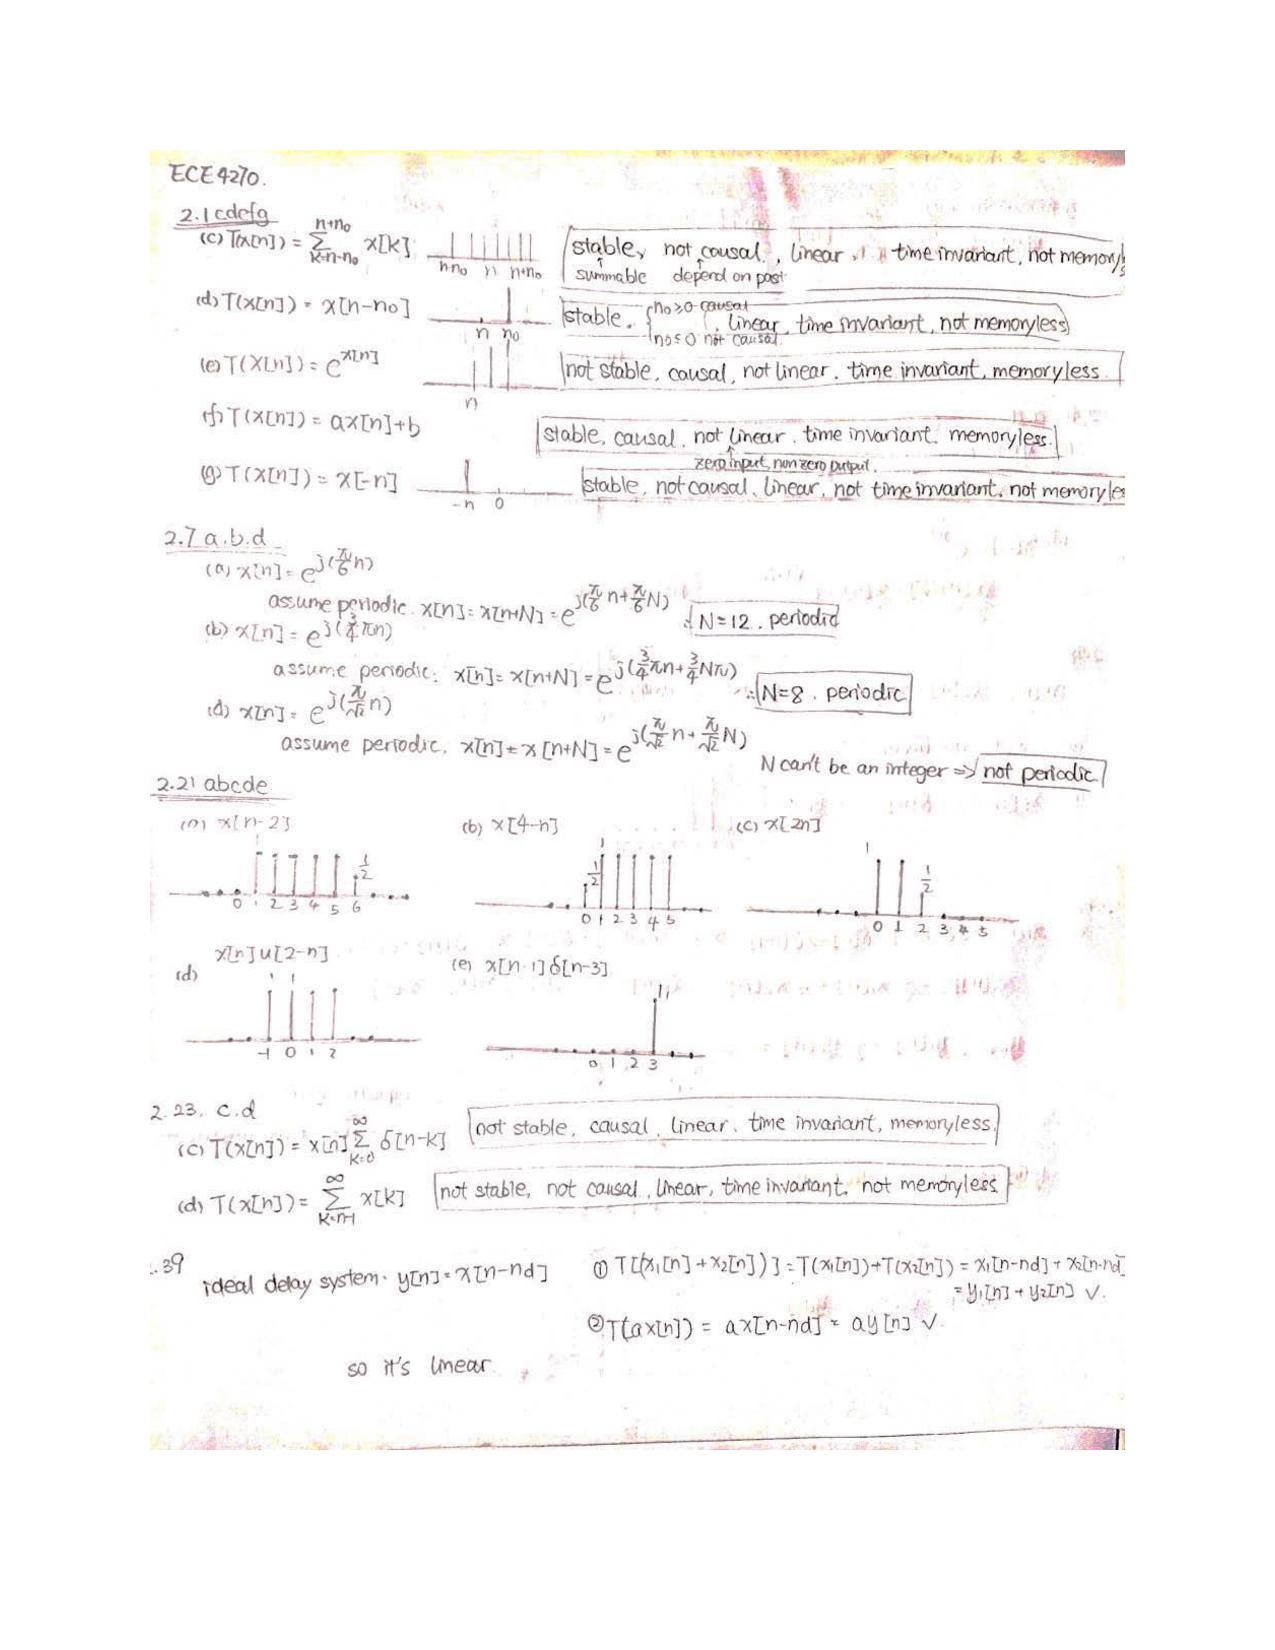 ECE 4270.
2.1 cdefg
(c) T(x[n]) = Σ_{k=n-n₀}^{n+n₀} x[k] n-n₀ n n+n₀ stable, not causal, linear, time invariant, not memoryless
summable depend on past
(d) T(x[n]) = x[n-n₀] n n₀ stable. { n₀≥0 causal n₀≤0 not causal. , linear, time invariant, not memoryless
(e) T(x[n]) = e^{x[n]} n not stable, causal, not linear, time invariant, memoryless.
(f) T(x[n]) = ax[n]+b stable, causal, not linear, time invariant. memoryless.
zero input, non zero output.
(g) T(x[n]) = x[-n] -n 0 stable, not causal, linear, not time invariant, not memoryle
2.7 a.b.d
(a) x[n] = e^{j(π/6 n)}
assume periodic. x[n] = x[n+N] = e^{j(π/6 n + π/6 N)} ∴ N=12. periodic
(b) x[n] = e^{j(3/4 πn)}
assume periodic. x[n] = x[n+N] = e^{j(3/4 πn + 3/4 Nπ)} ∴ N=8. periodic
(d) x[n] = e^{j(π/√2 n)}
assume periodic. x[n] = x[n+N] = e^{j(π/√2 n + π/√2 N)}
N can't be an integer => not periodic
2.21 abcde
(a) x[n-2] (b) x[4-n] (c) x[2n]
1 1/2 0 1 2 3 4 5 6
1 1/2 0 1 2 3 4 5
1 1/2 0 1 2 3 4 5
(d) x[n]u[2-n] (e) x[n-1]δ[n-3]
1 1 -1 0 1 2
1 0 1 2 3
2.23. c.d
(c) T(x[n]) = x[n] Σ_{k=0}^{∞} δ[n-k] not stable, causal, linear, time invariant, memoryless.
(d) T(x[n]) = Σ_{k=n-1}^{∞} x[k] not stable, not causal, linear, time invariant. not memoryless
.39
ideal delay system. y[n] = x[n-nd] ① T[(x₁[n]+x₂[n])] = T(x₁[n])+T(x₂[n]) = x₁[n-nd] + x₂[n-nd]
= y₁[n] + y₂[n] ✓.
② T(ax[n]) = ax[n-nd] = ay[n] ✓.
so it's linear.